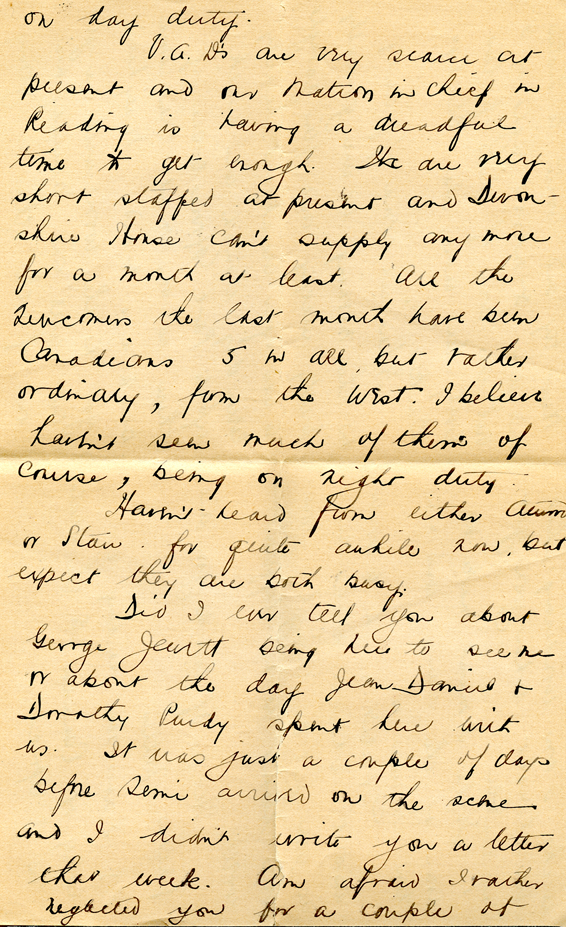 on day duty.
V.A.Ds are very scarce at
present and our Matron in Chief in
Reading is having a dreadful
time to get enough. We are very
short staffed at present and Devon-
shire House can't supply any more
for a month at least. All the
newcomers the last month have been
Canadians 5 in all, but rather
ordinary, from the West. I believe
haven't seen much of them of
course, being on night duty.
Haven't heard from either
or Stan. for quite awhile now, but
expect they are both busy.
Did I ever tell you about
George Jewett being here to see me
or about the day Jean Daniel &
Dorothy Purdy spent here with
us. It was just a couple of days
before arrived on the scene
and I didn't write you a letter
that week. Am afraid I rather
neglected you for a couple of